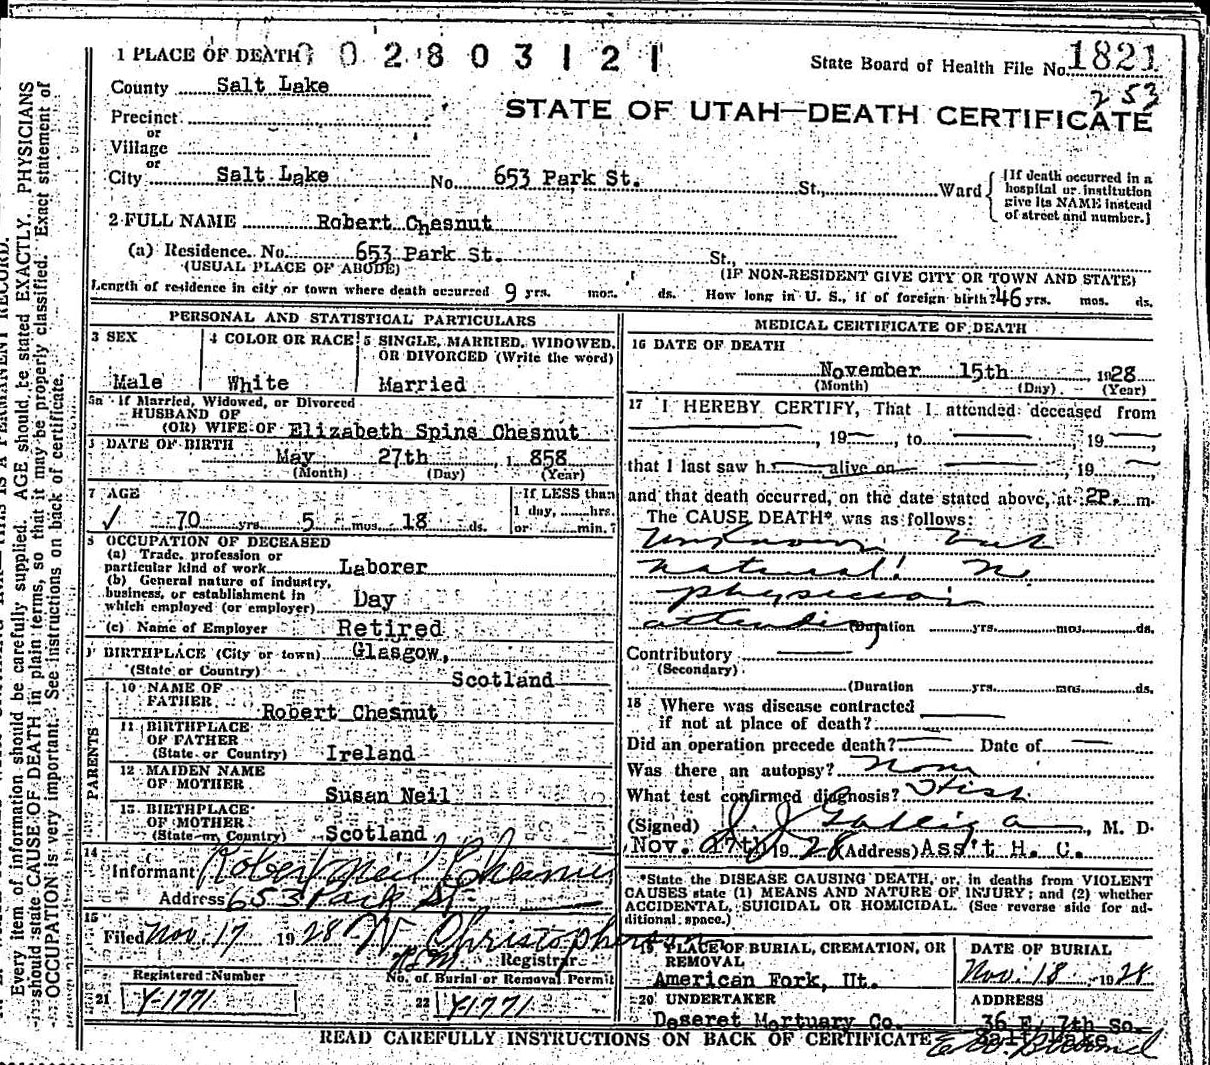 1 PLACE OF DEATH 0 0 2 8 0 3 1 2 1
State Board of Health File No. 1821
253
County Salt Lake
STATE OF UTAH—DEATH CERTIFICATE
Precinct
or
Village
or
City Salt Lake No. 653 Park St. St., Ward
[If death occurred in a hospital or institution give its NAME instead of street and number.]
2 FULL NAME Robert Chesnut
(a) Residence. No. 653 Park St. St.,
(USUAL PLACE OF ABODE) (IF NON-RESIDENT GIVE CITY OR TOWN AND STATE)
Length of residence in city or town where death occurred 9 yrs. mos. ds. How long in U. S., if of foreign birth? 46 yrs. mos. ds.
PERSONAL AND STATISTICAL PARTICULARS
3 SEX
Male
4 COLOR OR RACE
White
5 SINGLE, MARRIED, WIDOWED, OR DIVORCED (Write the word)
Married
5a If Married, Widowed, or Divorced
HUSBAND OF
(OR) WIFE OF Elizabeth Spins Chesnut
DATE OF BIRTH
May 27th, 1858
(Month) (Day) (Year)
7 AGE
✓ 70 yrs. 5 mos. 18 ds.
If LESS than
1 day, hrs.
or min.?
8 OCCUPATION OF DECEASED
(a) Trade, profession or
particular kind of work Laborer
(b) General nature of industry,
business, or establishment in
which employed (or employer) Day
(c) Name of Employer Retired
9 BIRTHPLACE (City or town) Glasgow,
(State or Country) Scotland
PARENTS
10 NAME OF
FATHER Robert Chesnut
11 BIRTHPLACE
OF FATHER
(State or Country) Ireland
12 MAIDEN NAME
OF MOTHER Susan Neil
13 BIRTHPLACE
OF MOTHER
(State or Country) Scotland
14
Informant Robert Neil Chesnut
Address 653 Park St.
15
Filed Nov. 17 1928 W Christopherson
Registrar
Registered Number
21 Y-1771
No. of Burial or Removal Permit
22 Y-1771
MEDICAL CERTIFICATE OF DEATH
16 DATE OF DEATH
November 15th, 1928
(Month) (Day) (Year)
17 I HEREBY CERTIFY, That I attended deceased from
, 19 , to , 19
that I last saw h alive on , 19
and that death occurred, on the date stated above, at 2P. m.
The CAUSE DEATH* was as follows:
Unknown but
natural! No
physician
attending (Duration yrs. mos. ds.
Contributory
(Secondary)
(Duration yrs. mos. ds.
18 Where was disease contracted
if not at place of death?
Did an operation precede death? Date of
Was there an autopsy? None
What test confirmed diagnosis? Hist.
(Signed) , M. D.
Nov. 17th 1928 (Address) Ass't H. C.
*State the DISEASE CAUSING DEATH, or, in deaths from VIOLENT
CAUSES state (1) MEANS AND NATURE OF INJURY; and (2) whether
ACCIDENTAL, SUICIDAL OR HOMICIDAL. (See reverse side for ad-
ditional space.)
19 PLACE OF BURIAL, CREMATION, OR
REMOVAL
American Fork, Ut.
DATE OF BURIAL
Nov. 18 1928
20 UNDERTAKER
Deseret Mortuary Co.
ADDRESS
36 E. 7th So.
Salt Lake
READ CAREFULLY INSTRUCTIONS ON BACK OF CERTIFICATE
THIS IS A PERMANENT RECORD.
Every item of information should be carefully supplied. AGE should be stated EXACTLY. PHYSICIANS
should state CAUSE OF DEATH in plain terms, so that it may be properly classified. Exact statement of
OCCUPATION is very important. See instructions on back of certificate.